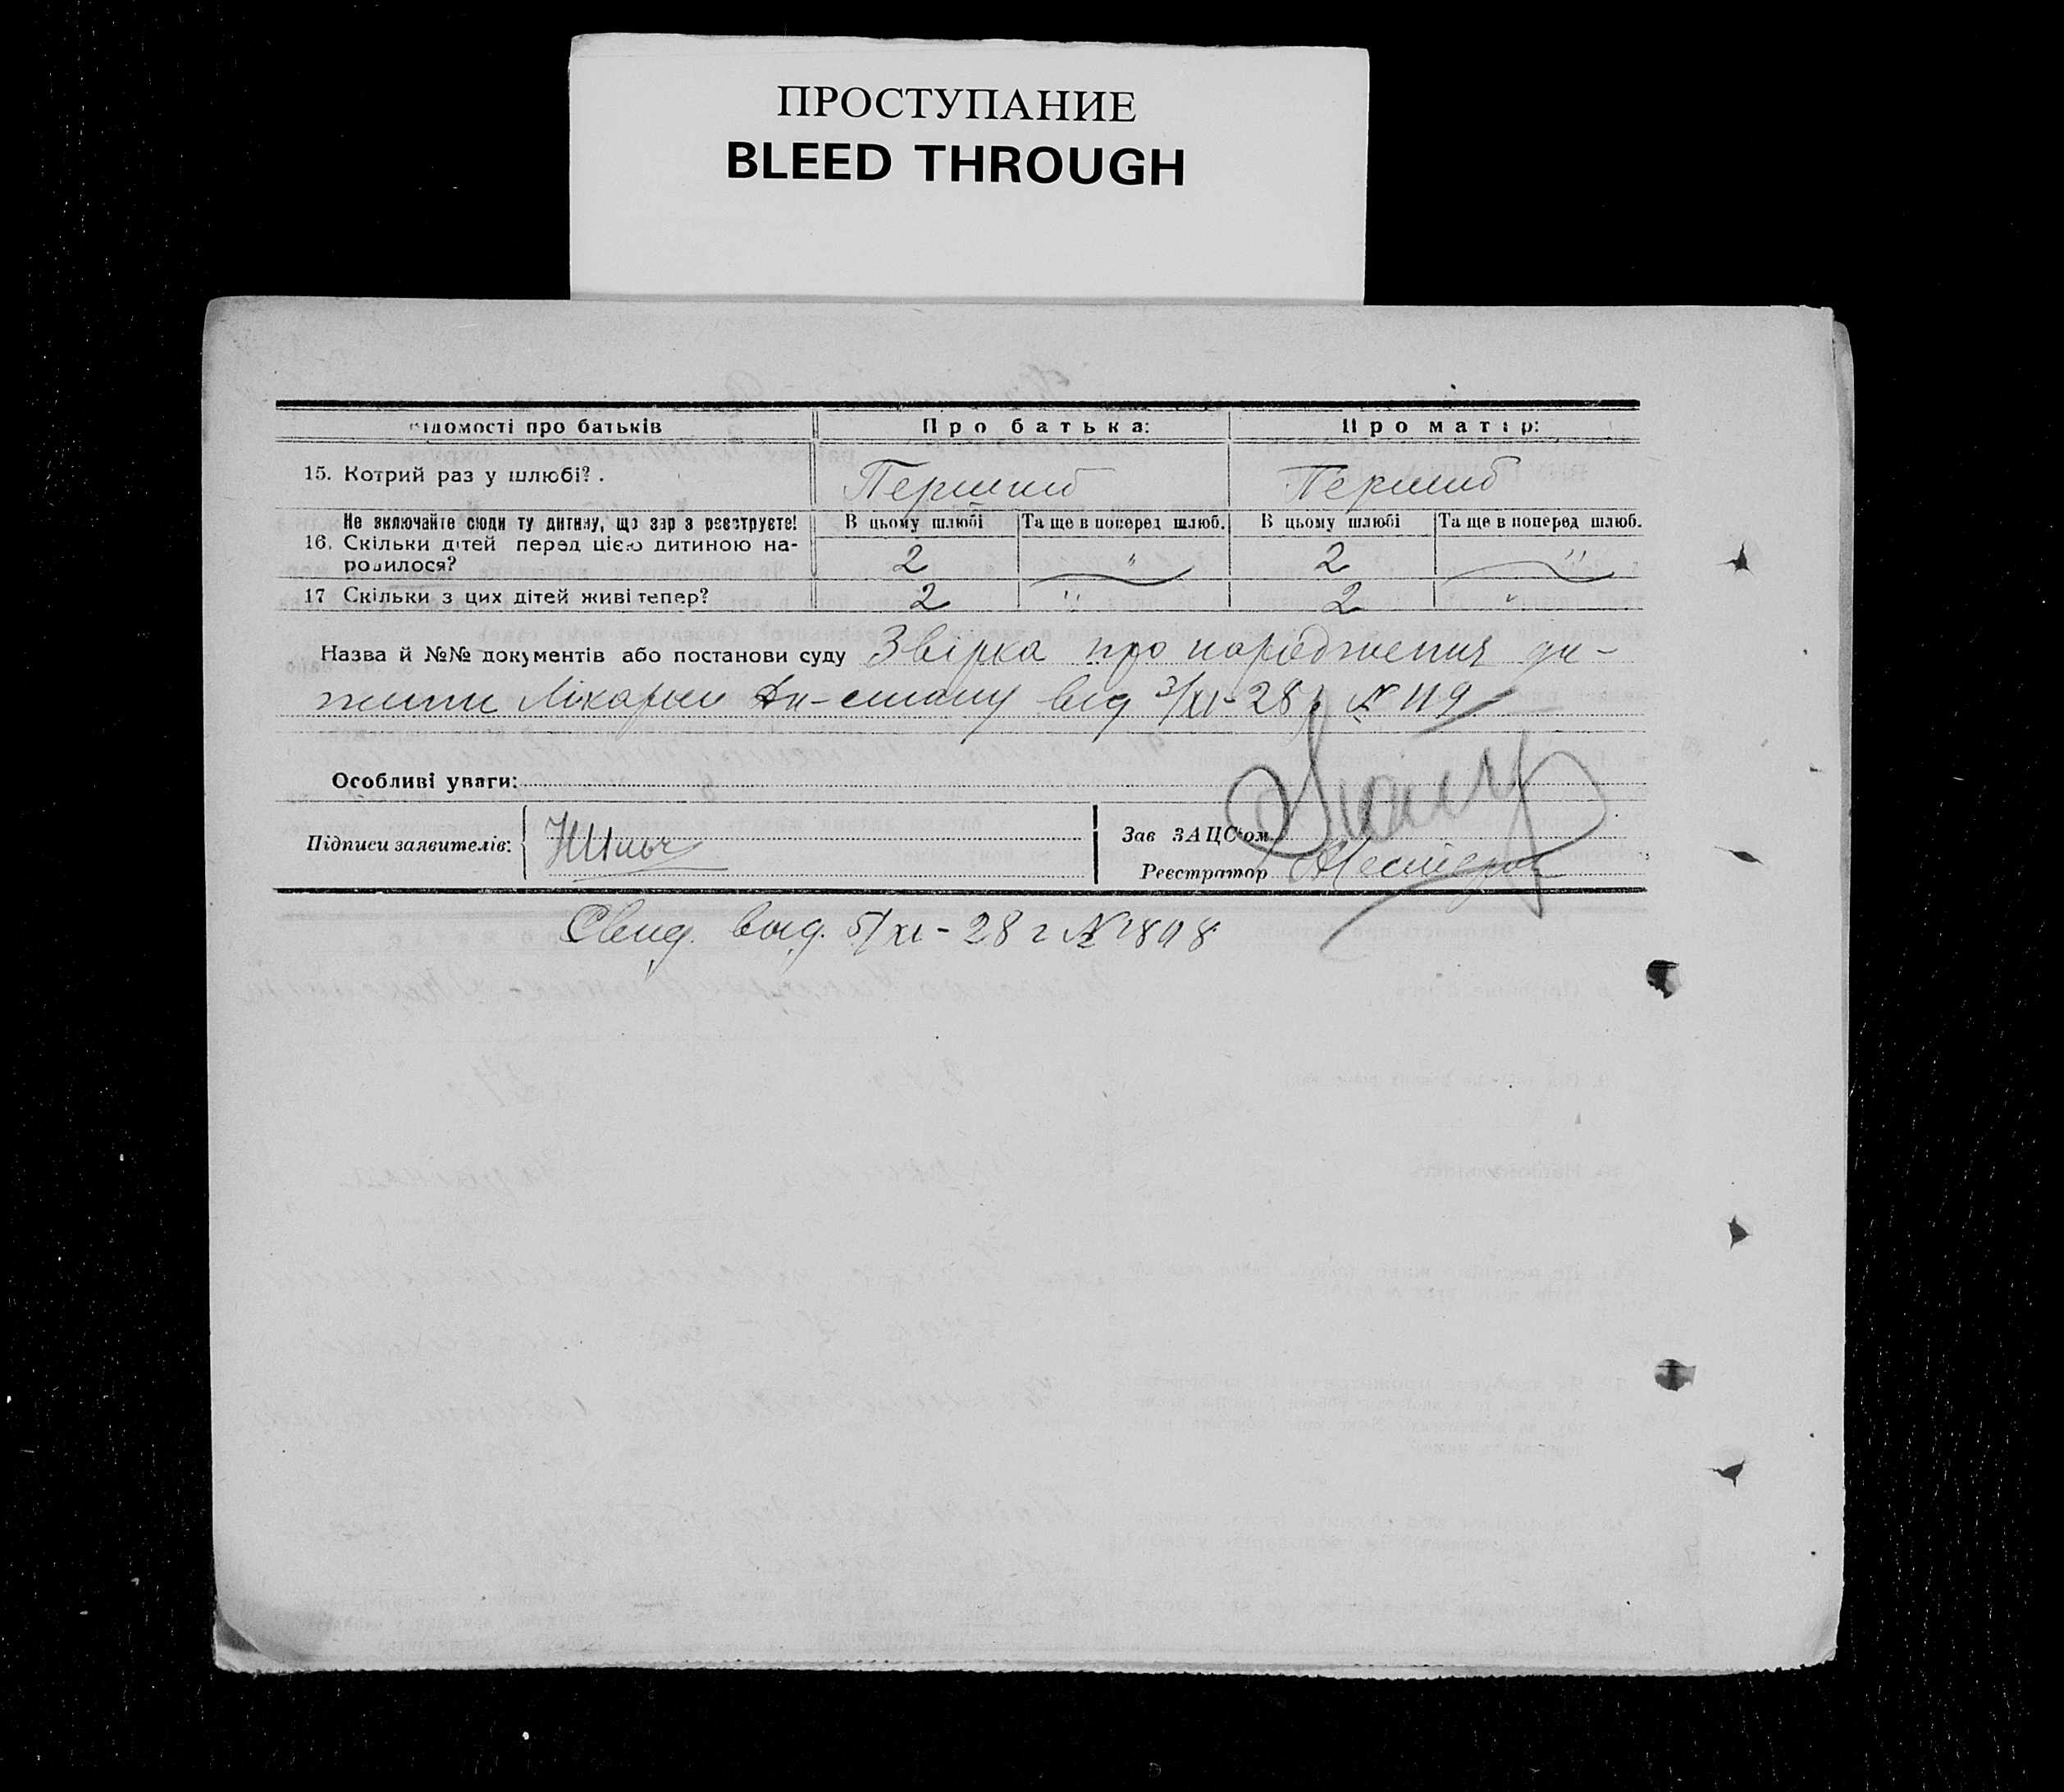 ПРОСТУПАНИЕ
BLEED THROUGH
ідомості про батьків Про батька: Про матір:
15. Котрий раз у шлюбі? . Перший Перший
Не включайте сюди ту дитину, що зараз реєструєте! В цьому шлюбі Та ще в поперед шлюб. В цьому шлюбі Та ще в поперед шлюб.
16. Скільки дітей перед цією дитиною на-
родилося? 2 " 2 "
17 Скільки з цих дітей живі тепер? 2 " 2 "
Назва й №№ документів або постанови суду Звірка про народження ди-
тини від 3/XI-28р № 119
Особливі уваги:
Підписи заявителів: Зав ЗАЦС'ом
Реєстратор
Свид. выд. 5/XI-28 г № 1898